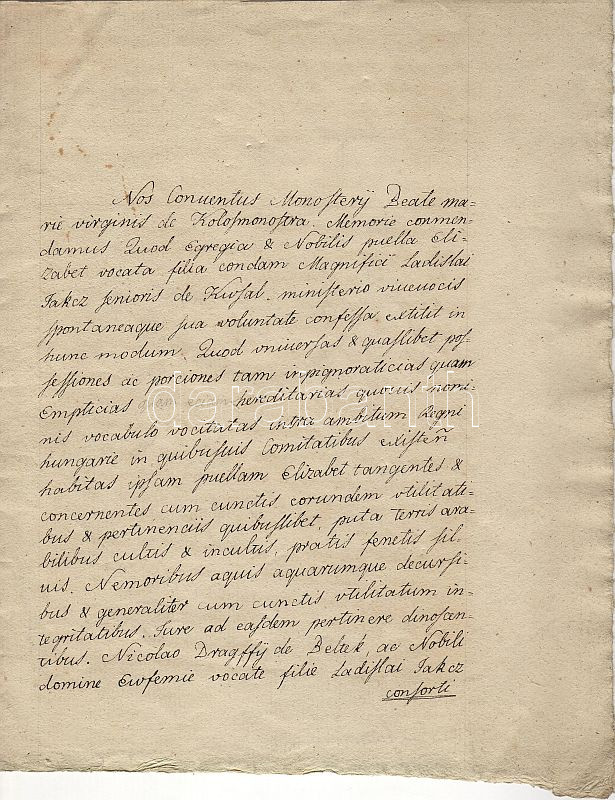 Nos Conuentus Monosterÿ Beate ma=
rie virginis de Kolosmonostra. Memorie conmen=
damus Quod Egregia & Nobilis puella Eli=
zabet vocata filia condam Magnifici Ladislai
Jakcz senioris de Kusal. ministerio viueuocis
spontaneaque sua voluntate confessa extitit in
hunc modum. Quod vniuersas & quaslibet pos=
sessiones ac porciones tam inpignoraticias quam
Empticias hereditarias quouis nomi=
nis vocabulo vocitatas intra ambitum Regni
hungarie in quibusuis Comitatibus existen̄
habitas ipsam puellam Elizabet tangentes &
concernentes cum cunctis eorundem vtilitati=
bus & pertinenciis quibuslibet, puta Terris ara=
bilibus cultis & incultis, pratis fenetis sil=
uis. Nemoribus aquis aquarumque decursi=
bus & generaliter cum cunctis vtilitatum in=
tegritatibus. Jure ad easdem pertinere dinoscen=
tibus. Nicolao Dragffÿ de Beltek, ac Nobili
domine Ewfemie vocate filie Ladislai Jakcz
consorti
darabanth